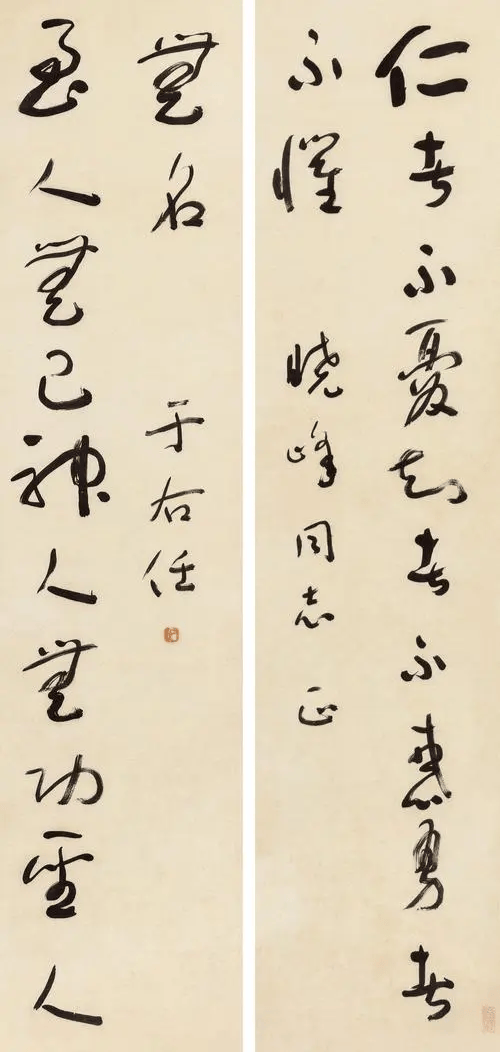 仁者不憂知者不惑勇者
不懼 曉峰同志正
至人無己神人無功聖人
無名 于右任